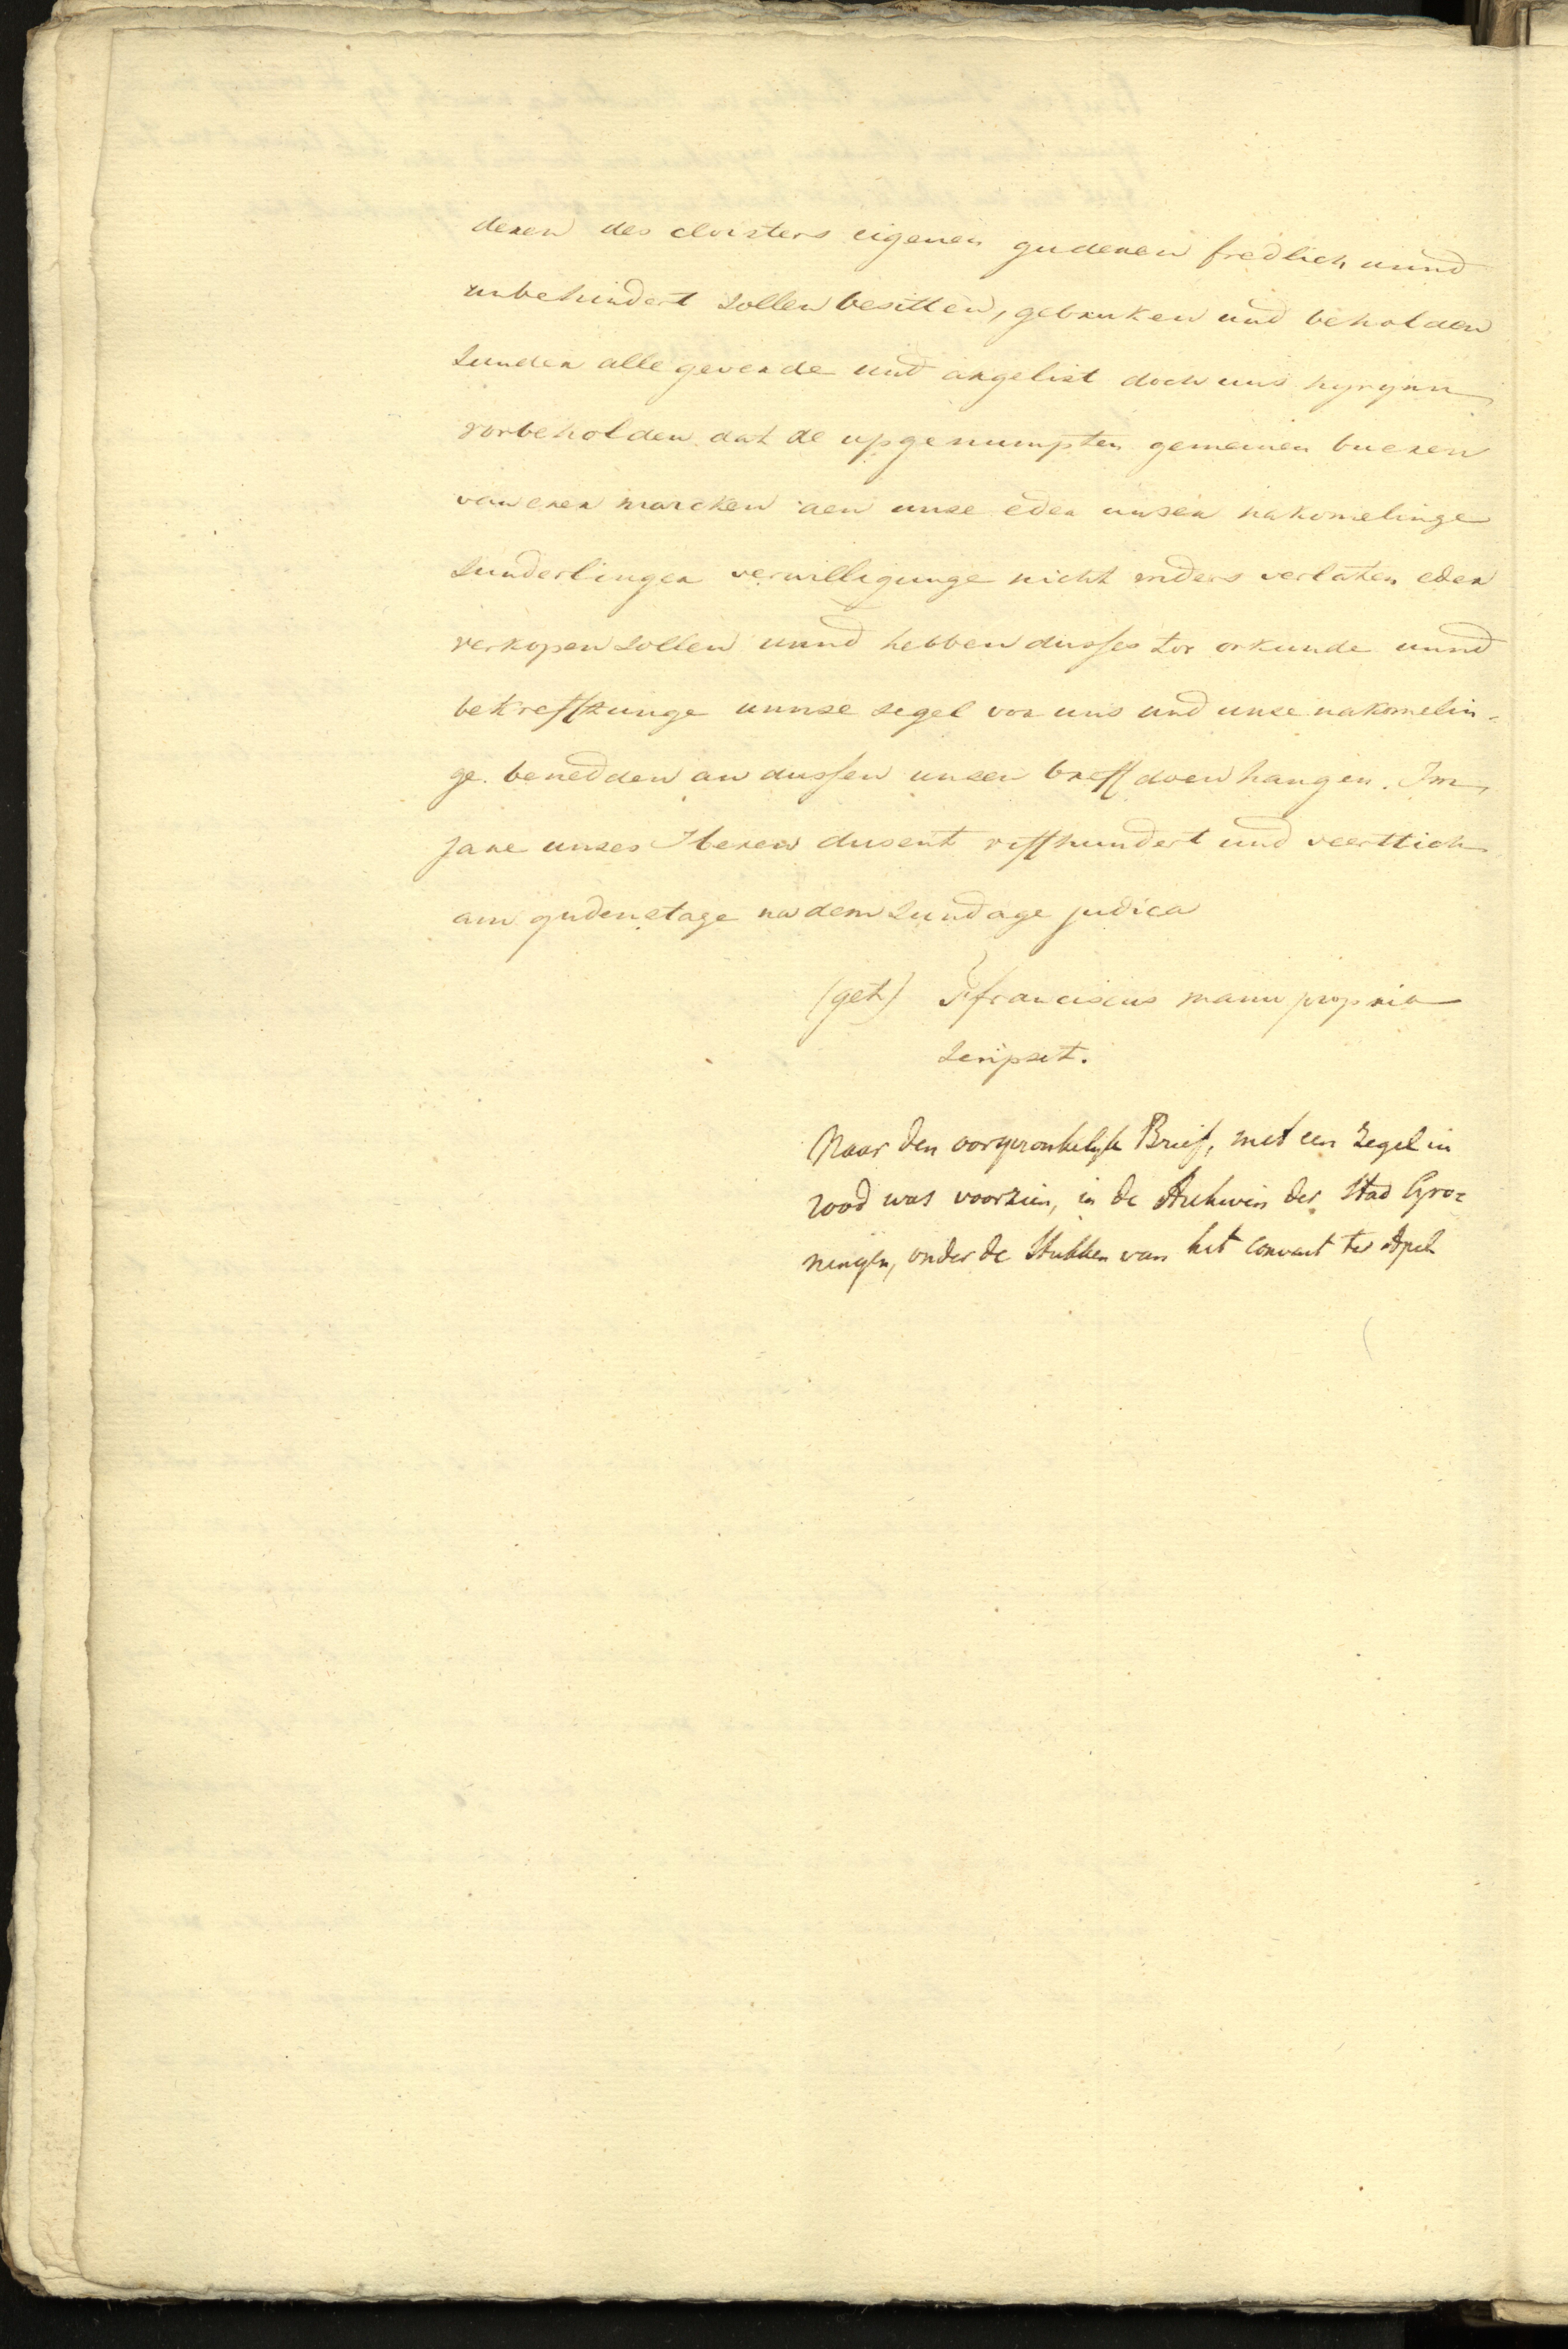 deren des cloisters eigenen guderen fredlich unnd
unbehindert sollen besitten, gebruken und beholden
sunder alle geverde und argelist doch uns hyrynn
vorbeholden dat de upgenumpten gemeinen bueren
van erer marcken aen unse eder unser nakomelinge
sunderlinger verwilligunge nicht anders verlaten eder
verkopen sollen unnd hebben dusses tor orkunde unnd
bekrefftunge unnse segel vor uns und unse nakomelin-
ge benedden an dussen unsen breff doen hangen. Im
jare unses Heren dusent viffhundert und veerttich
am gudenstage na dem sundage judica
(get) Ffranciscus manu propria
scripsit.
Naar den oorspronkelyk Brief, met een zegel in
rood was voorzien, in de Archiven der Stad Gro-
ningen, onder de Stukken van het convent ter Apel